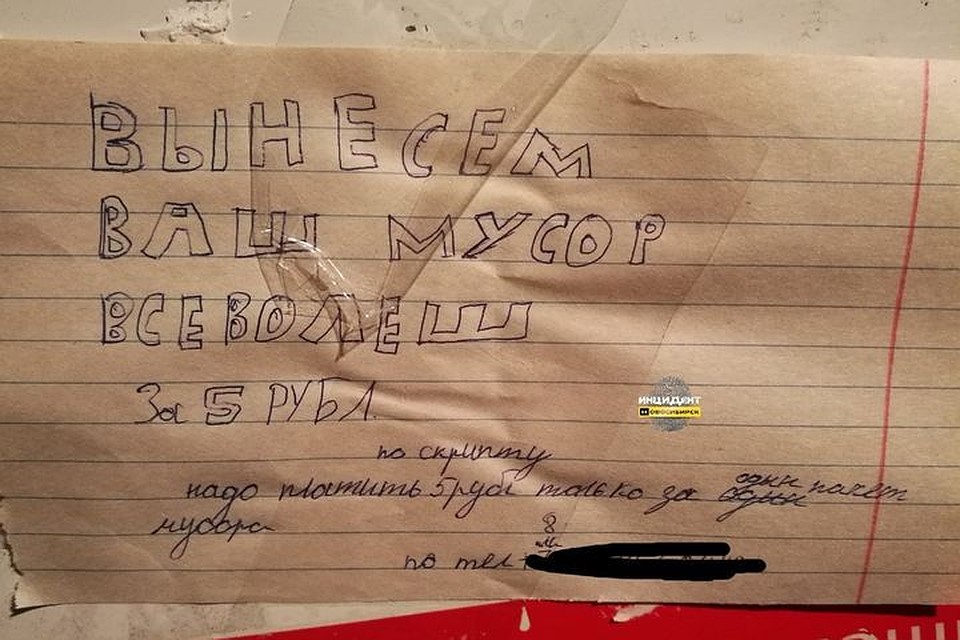 ВЫНЕСЕМ
ВАШ МУСОР
ВСЕВОЛЕШ
За 5 РУБЛ.
ИНЦИДЕНТ
НОВОСИБИРСК
по скрипту
надо платить 5рубл только за один пакет
мусора
8
или
по тел